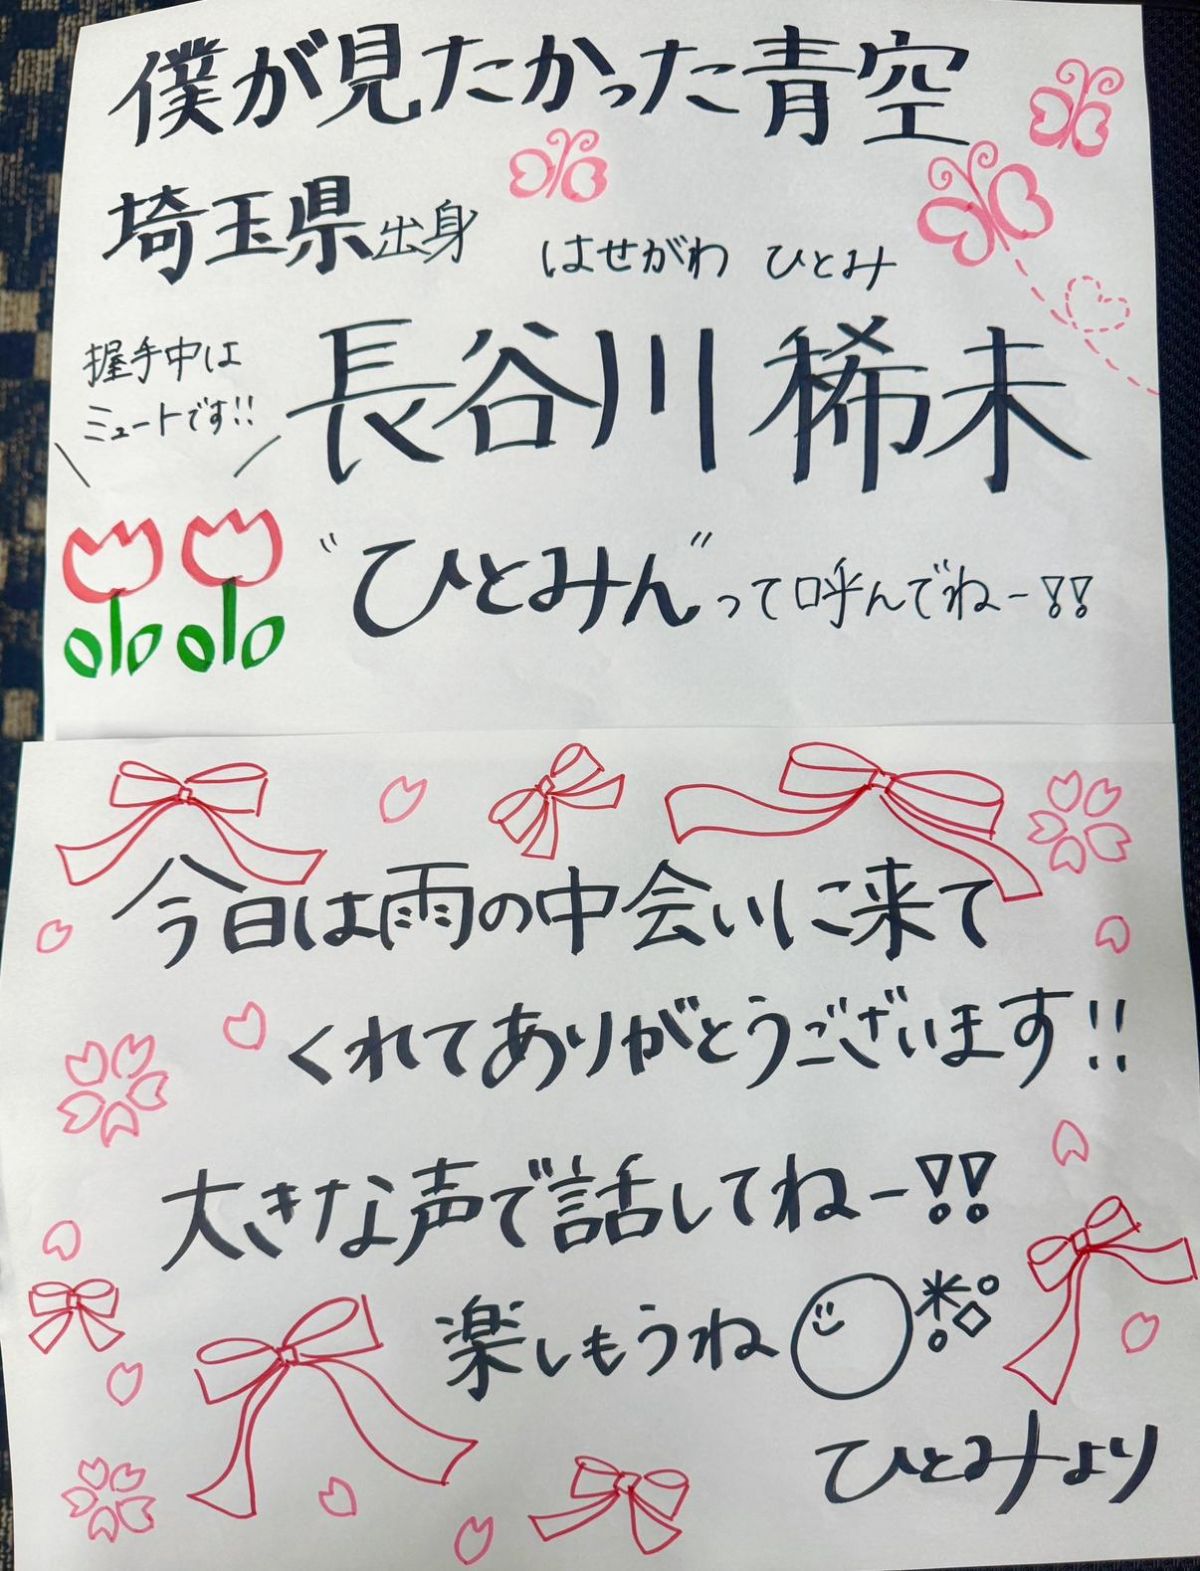 僕が見たかった青空
埼玉県出身
はせがわ ひとみ
長谷川 稀未
握手中は
ミュートです!!
"ひとみん"って呼んでねー!!
今日は雨の中会いに来て
くれてありがとうございます!!
大きな声で話してねー!!
楽しもうね
ひとみより